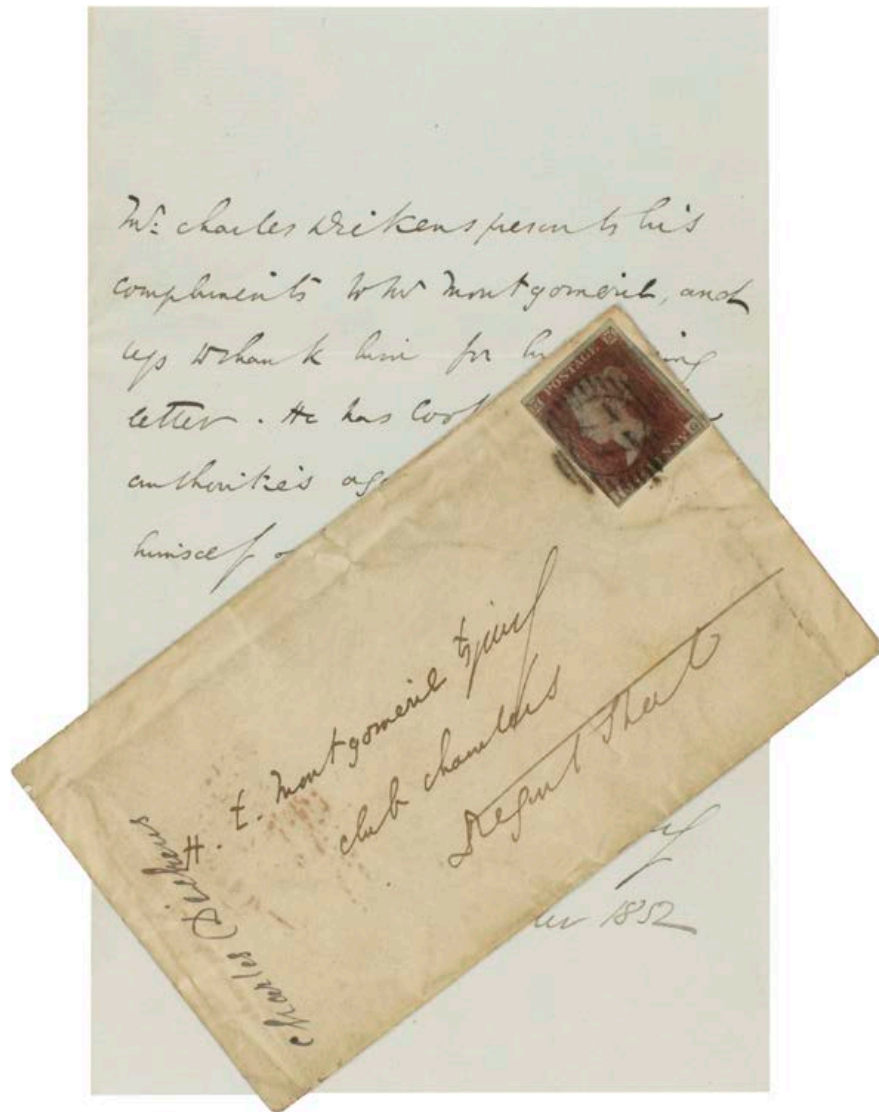 Mr. Charles Dickens presents his
compliments to Mr Montgomerie, and
begs to thank him for
letter. He has
authorities
himself
1852
POSTAGE
H. E. Montgomerie Esquire
Club Chambers
Regent Street
Charles Dickens